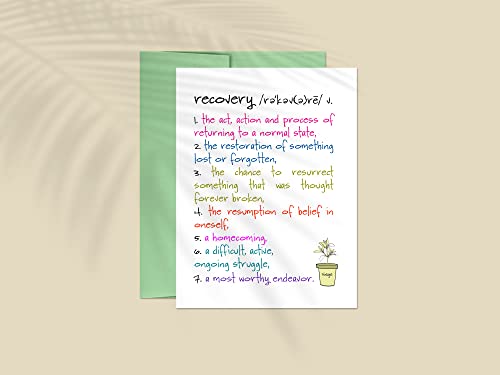 recovery /rə'kəv(ə)rē/ v.
1. the act, action and process of
returning to a normal state,
2. the restoration of something
lost or forgotten,
3. the chance to resurrect
something that was thought
forever broken,
4. the resumption of belief in
oneself,
5. a homecoming,
6. a difficult, active,
ongoing struggle,
7. a most worthy endeavor.